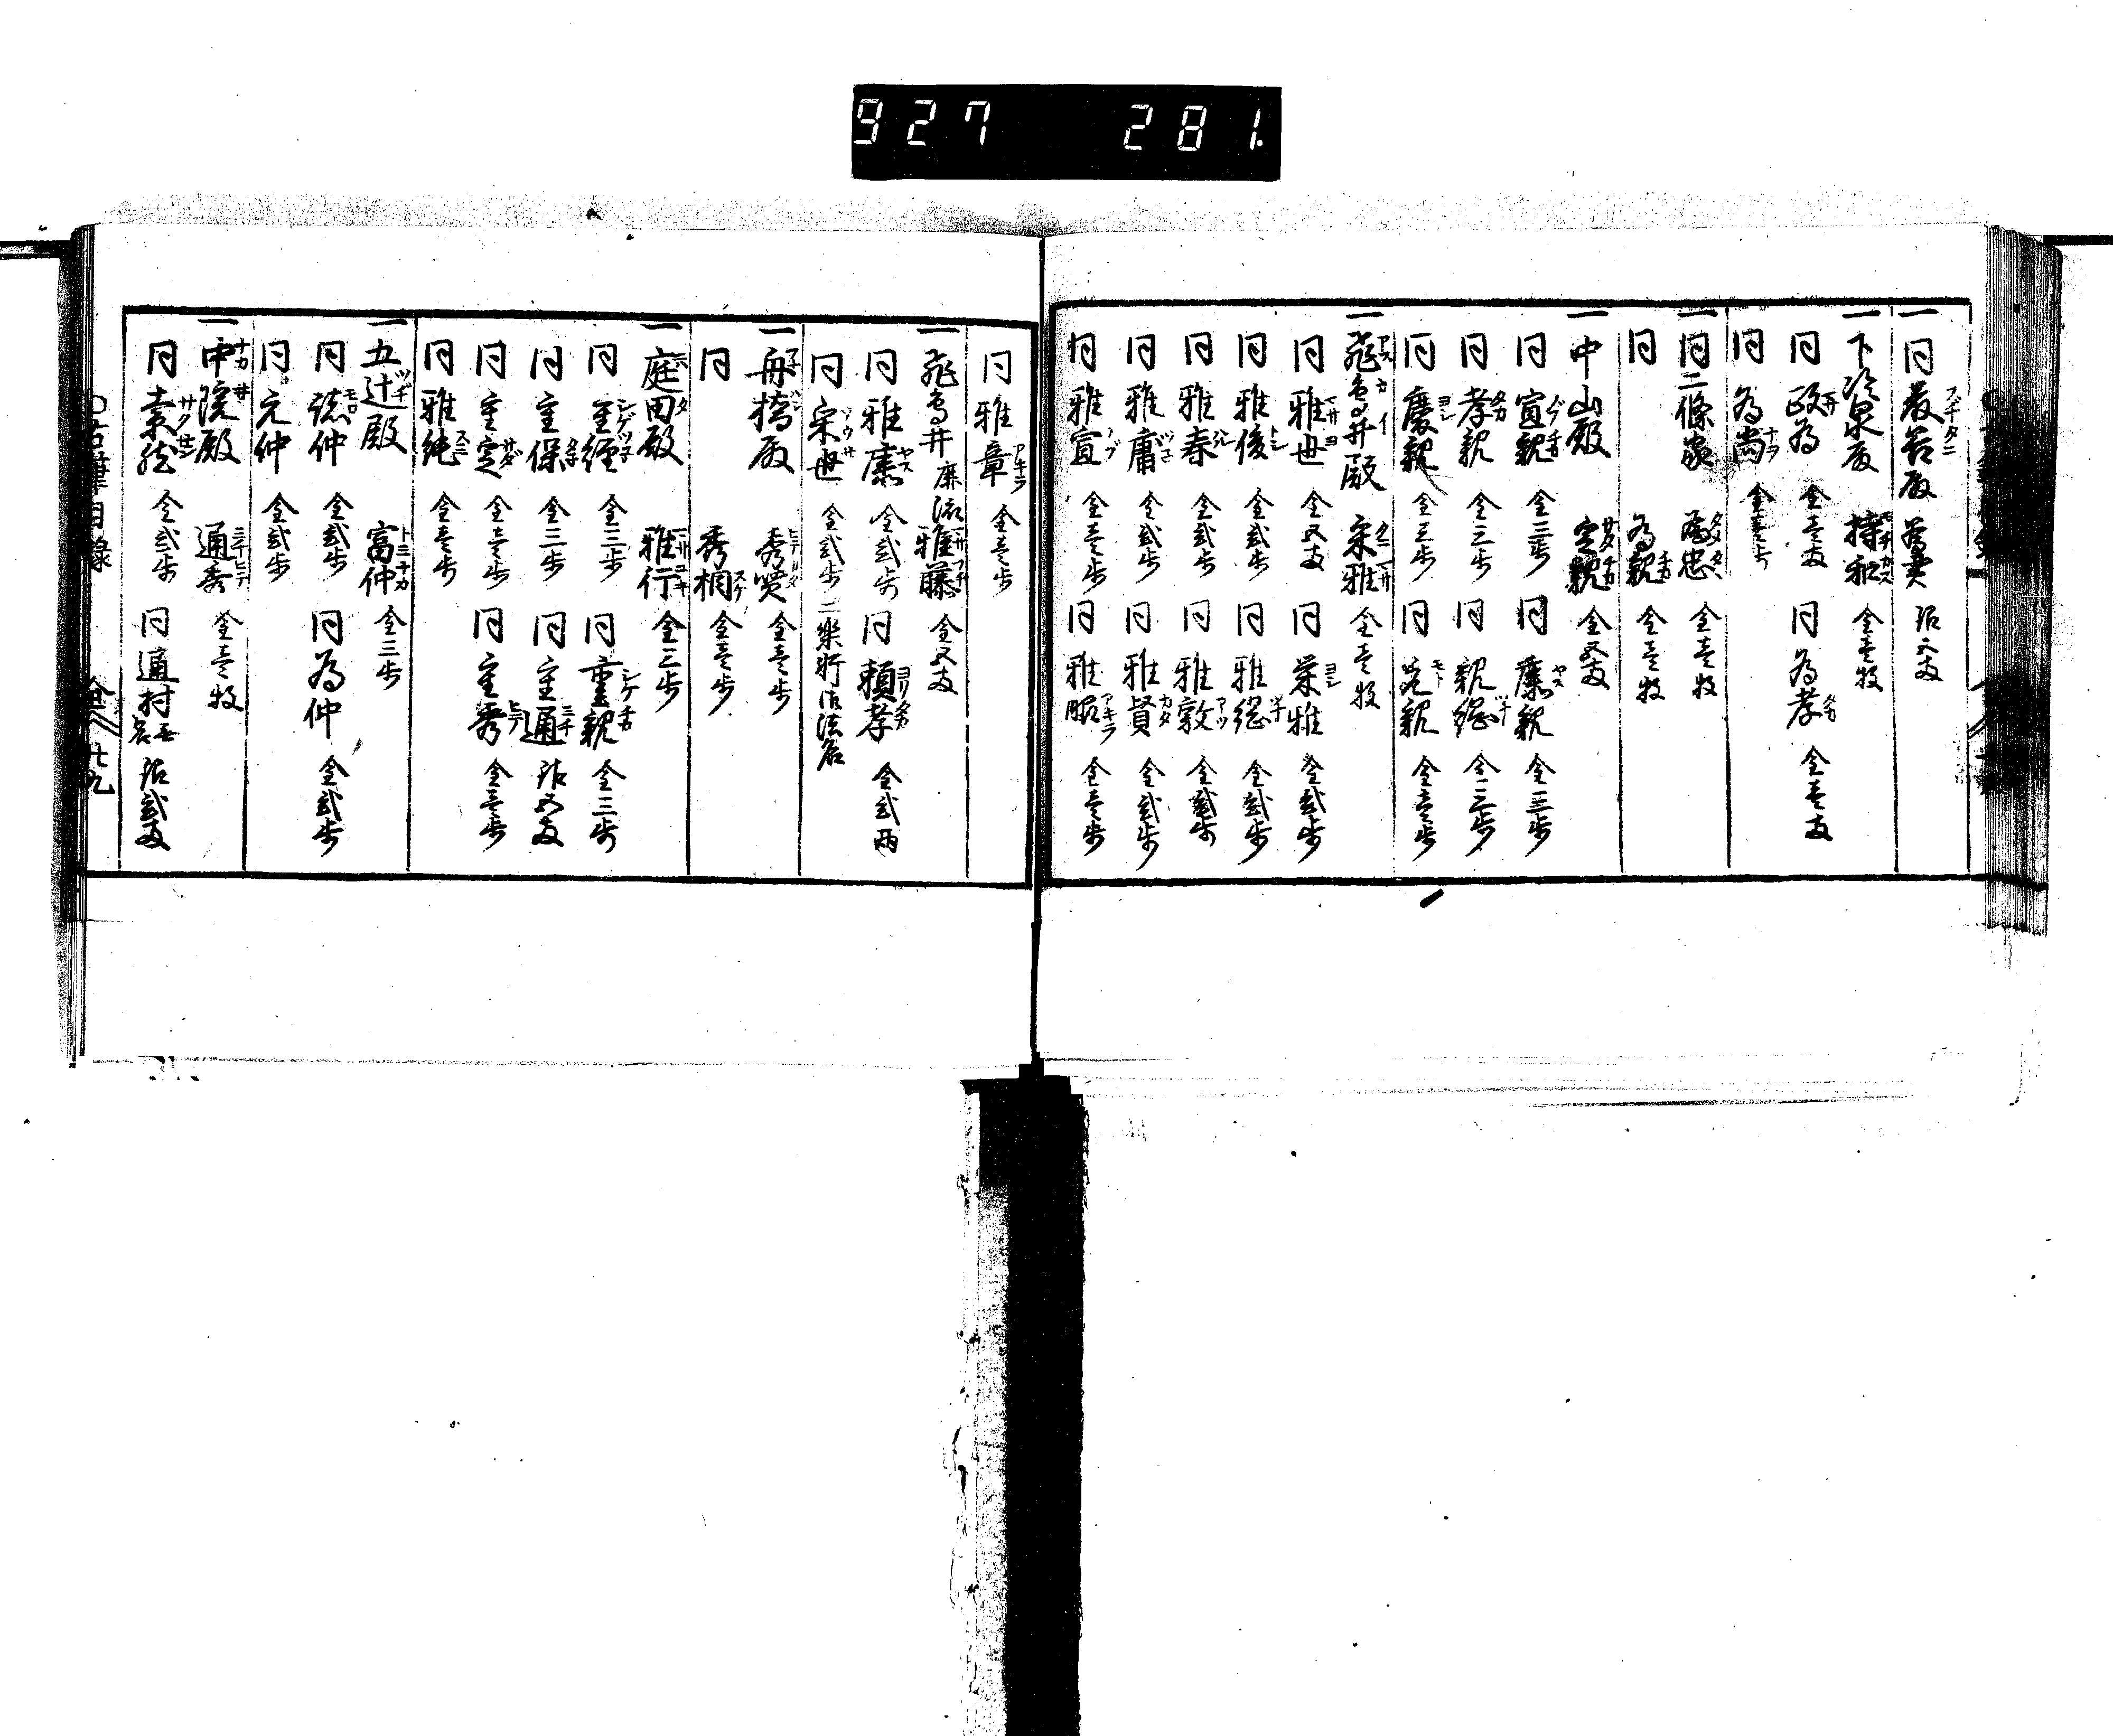 927 281.
一同 藤谷殿 為賢 銀五匁
一下冷泉殿 持和 金壱枚
同 政為 金壱両 同 為孝 金壱両
同 為尚 金壱歩
一同二條家 為忠 金壱枚
同 為親 金壱枚
一中山殿 定親 金五両
同 宣親 金三歩 同 康親 金三歩
同 孝親 金三歩 同 親綱 金三歩
同 慶親 金三歩 同 元親 金壱歩
一飛鳥井殿 宋雅 金壱枚
同 雅世 金五両 同 栄雅 金弐歩
同 雅俊 金弐歩 同 雅綱 金弐歩
同 雅春 金弐歩 同 雅敦 金弐歩
同 雅庸 金弐歩 同 雅賢 金弐歩
同 雅宣 金壱歩 同 雅昭 金壱歩
同 雅章 金壱歩
一飛鳥井庶流 雅藤 金五両
同 雅康 金弐歩 同 頼孝 金弐両
同 宋世 金弐歩 二楽軒 法名
一舟橋殿 秀賢 金壱歩
同 秀相 金壱歩
一庭田殿 雅行 金三歩
同 重経 金三歩 同 重親 金三歩
同 重保 金三歩 同 重通 銀五匁
同 重定 金壱歩 同 重秀 金壱歩
同 雅純 金壱歩
一五辻殿 富仲 金三歩
同 諸仲 金弐歩 同 為仲 金弐歩
同 元仲 金弐歩
一中院殿 通秀 金壱枚
同 素然 金弐歩 同 通村 銀弐匁
古筆目録 廿九